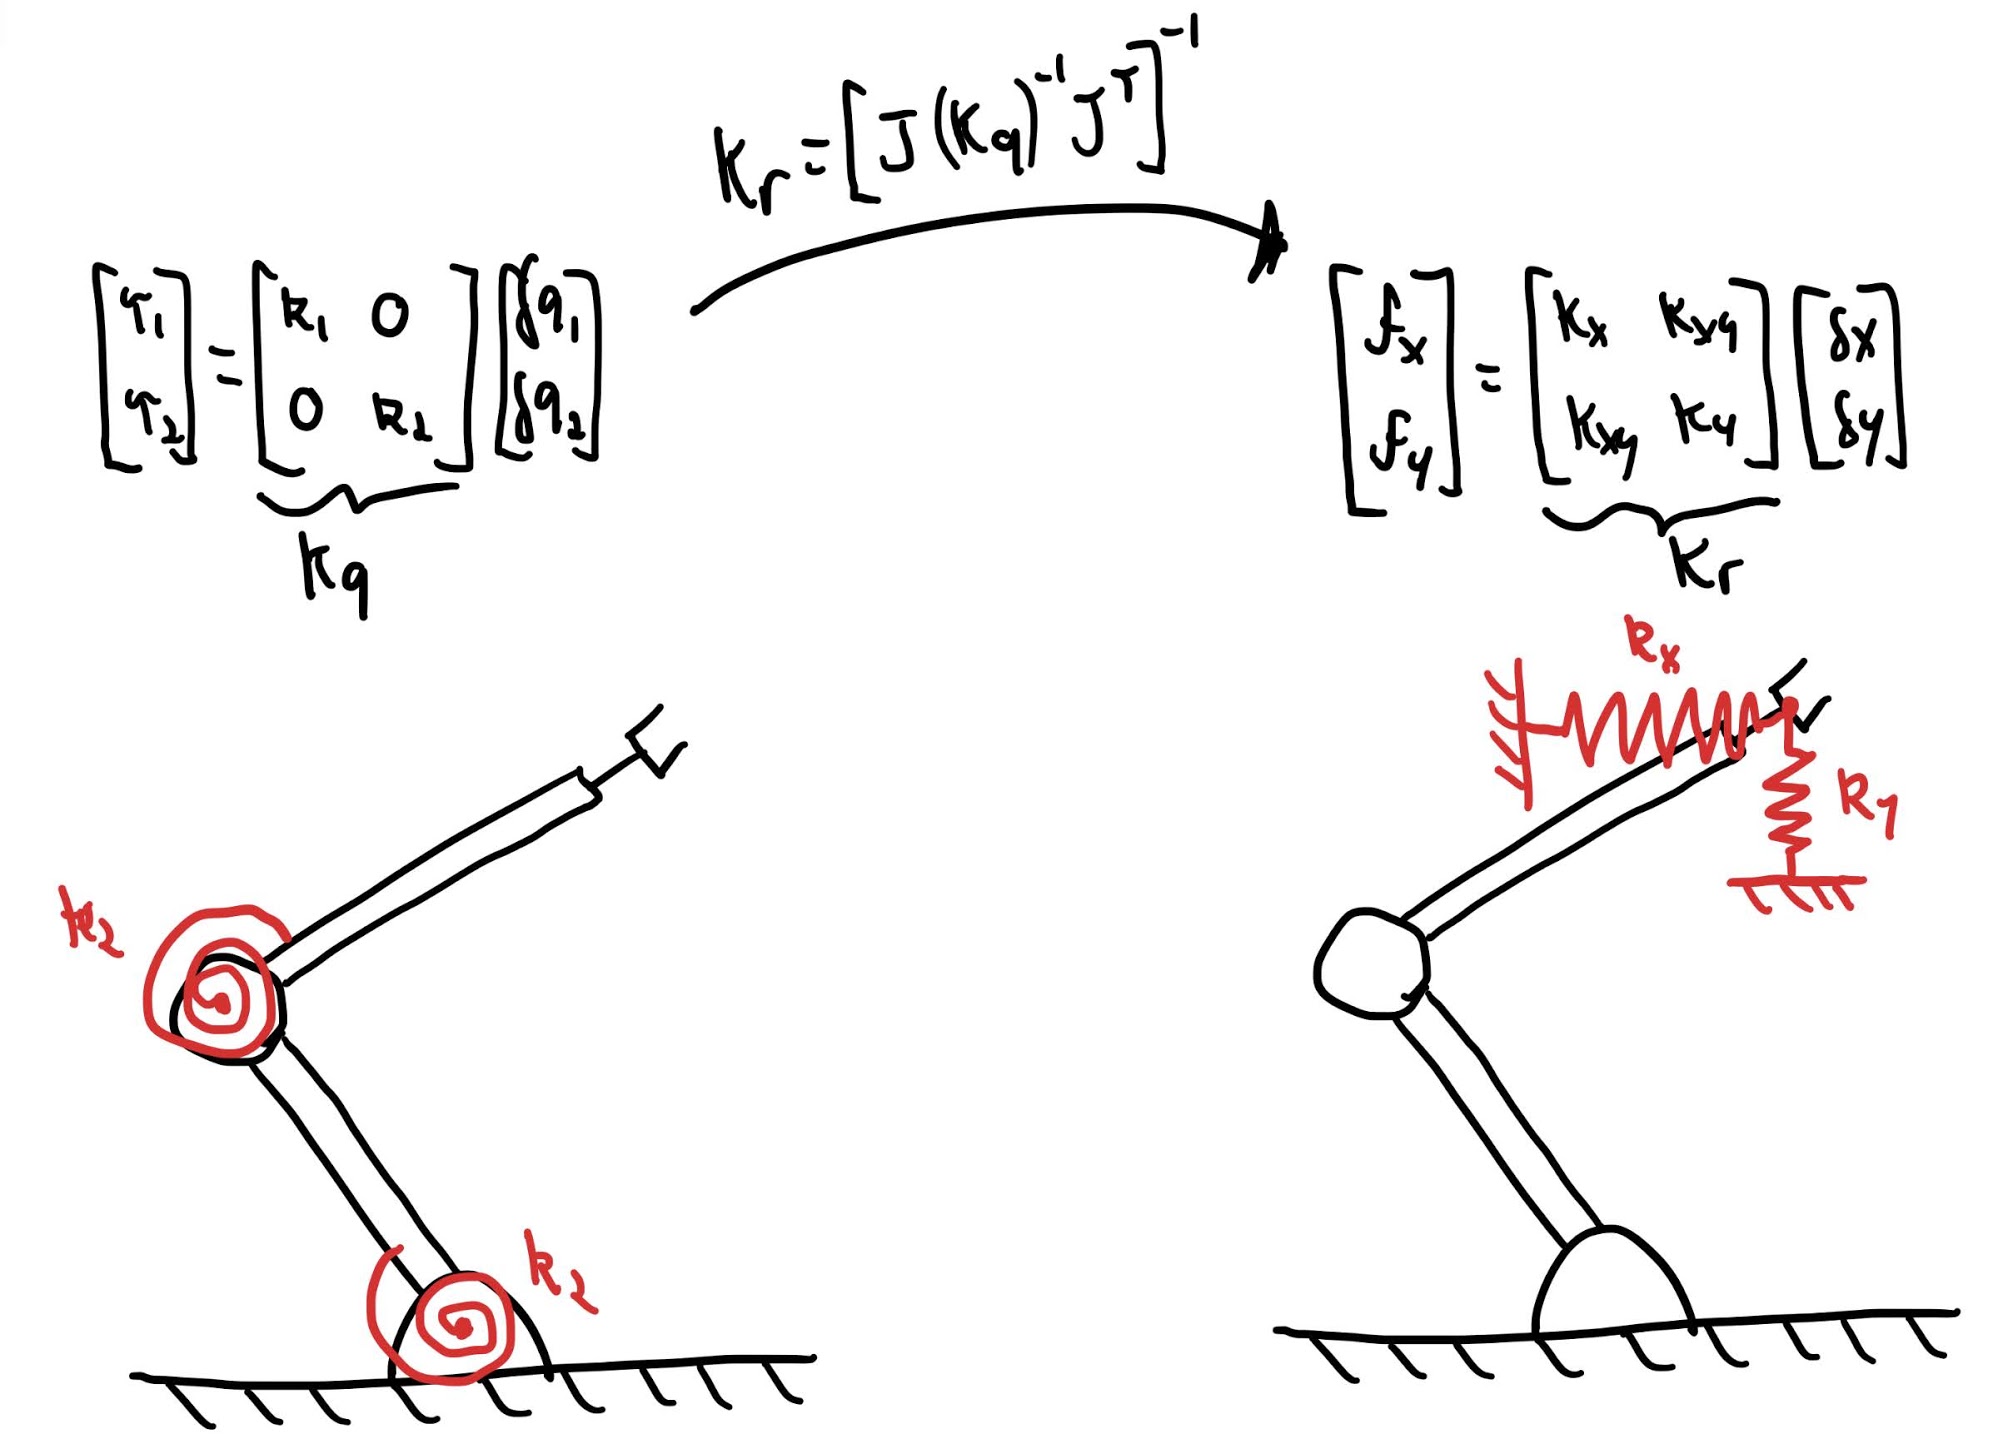 Kr = [J (Kq)⁻¹ Jᵀ]⁻¹
[τ₁ τ₂] = [k₁ 0 0 k₂] [δq₁ δq₂]
Kq
[fx fy] = [Kx Kxy Kxy Ky] [δx δy]
Kr
k₂
k₂
kx
ky